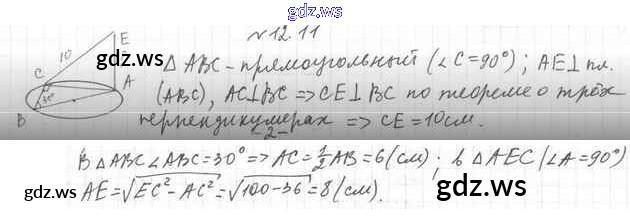 gdz.ws
№ 12.11
10
E
gdz.ws
C
A
B
30°
Δ ABC - прямоугольный (∠C=90°); AE⊥ пл.
(ABC), AC⊥BC ⇒ CE⊥BC по теореме о трёх
перпендикулярах ⇒ CE=10см.
-2-
В Δ ABC ∠ABC=30° ⇒ AC=½AB=6(см); в Δ AEC (∠A=90°)
AE=√EC²-AC²=√100-36=8(см).
gdz.ws
gdz.ws
gdz.ws